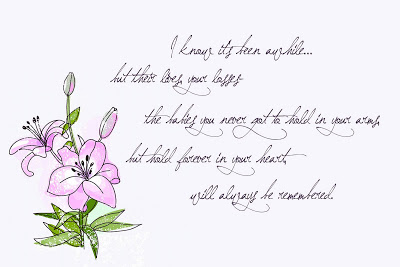 I know it's been awhile...
but their lives, your losses
the babies you never got to hold in your arms,
but hold forever in your heart,
will always be remembered.